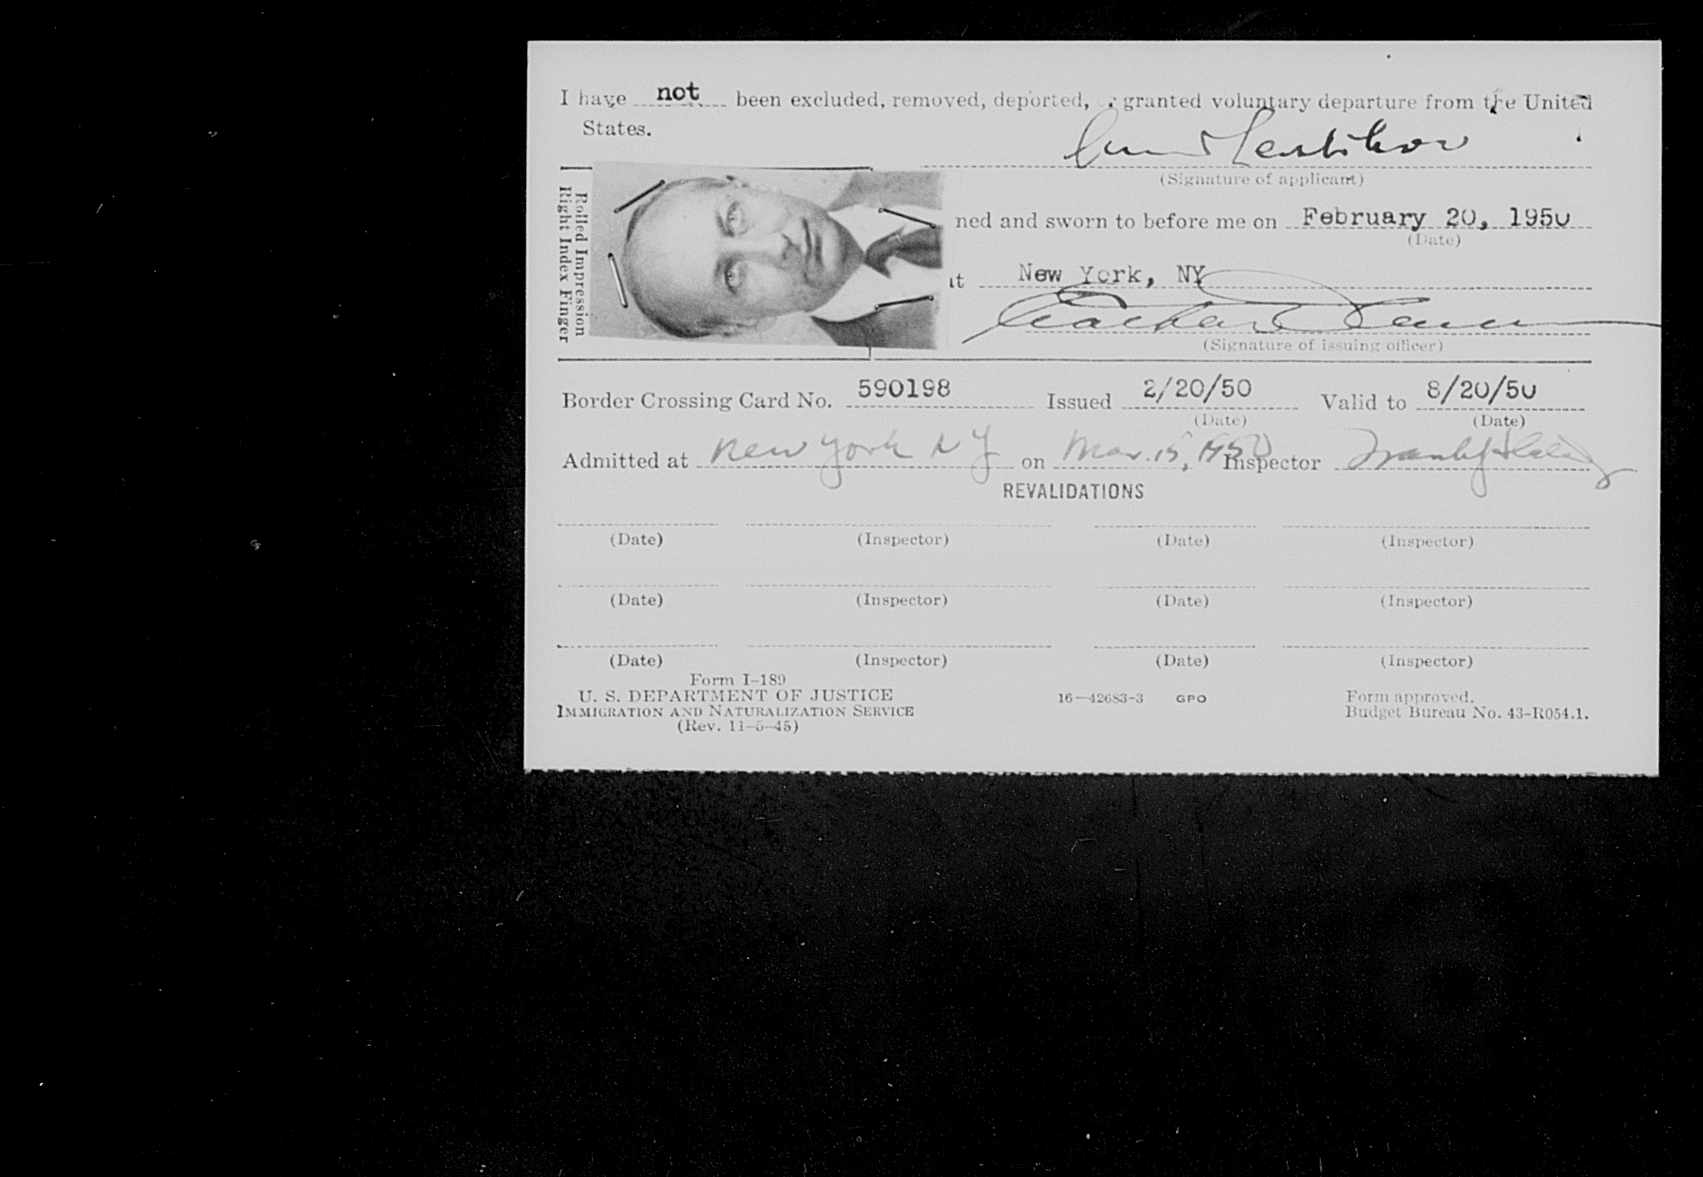 I have not been excluded, removed, deported, granted voluntary departure from the United
States.
(Signature of applicant)
Rolled Impression
Right Index Finger
ned and sworn to before me on February 20, 1950
(Date)
at New York, NY
(Signature of issuing officer)
Border Crossing Card No. 590198 Issued 2/20/50 Valid to 8/20/50
(Date) (Date)
Admitted at New York NY on Mar. 15, 1950 Inspector
REVALIDATIONS
(Date) (Inspector) (Date) (Inspector)
(Date) (Inspector) (Date) (Inspector)
(Date) (Inspector) (Date) (Inspector)
Form I-189
U. S. DEPARTMENT OF JUSTICE 16—42683-3 GPO Form approved.
IMMIGRATION AND NATURALIZATION SERVICE Budget Bureau No. 43-R054.1.
(Rev. 11-5-45)